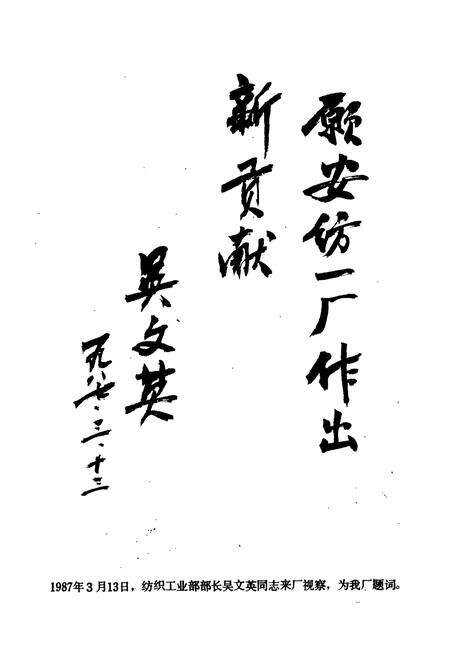 愿安纺一厂作出
新贡献
吴文英
一九八七·三·十三
1987年3月13日，纺织工业部部长吴文英同志来厂视察，为我厂题词。